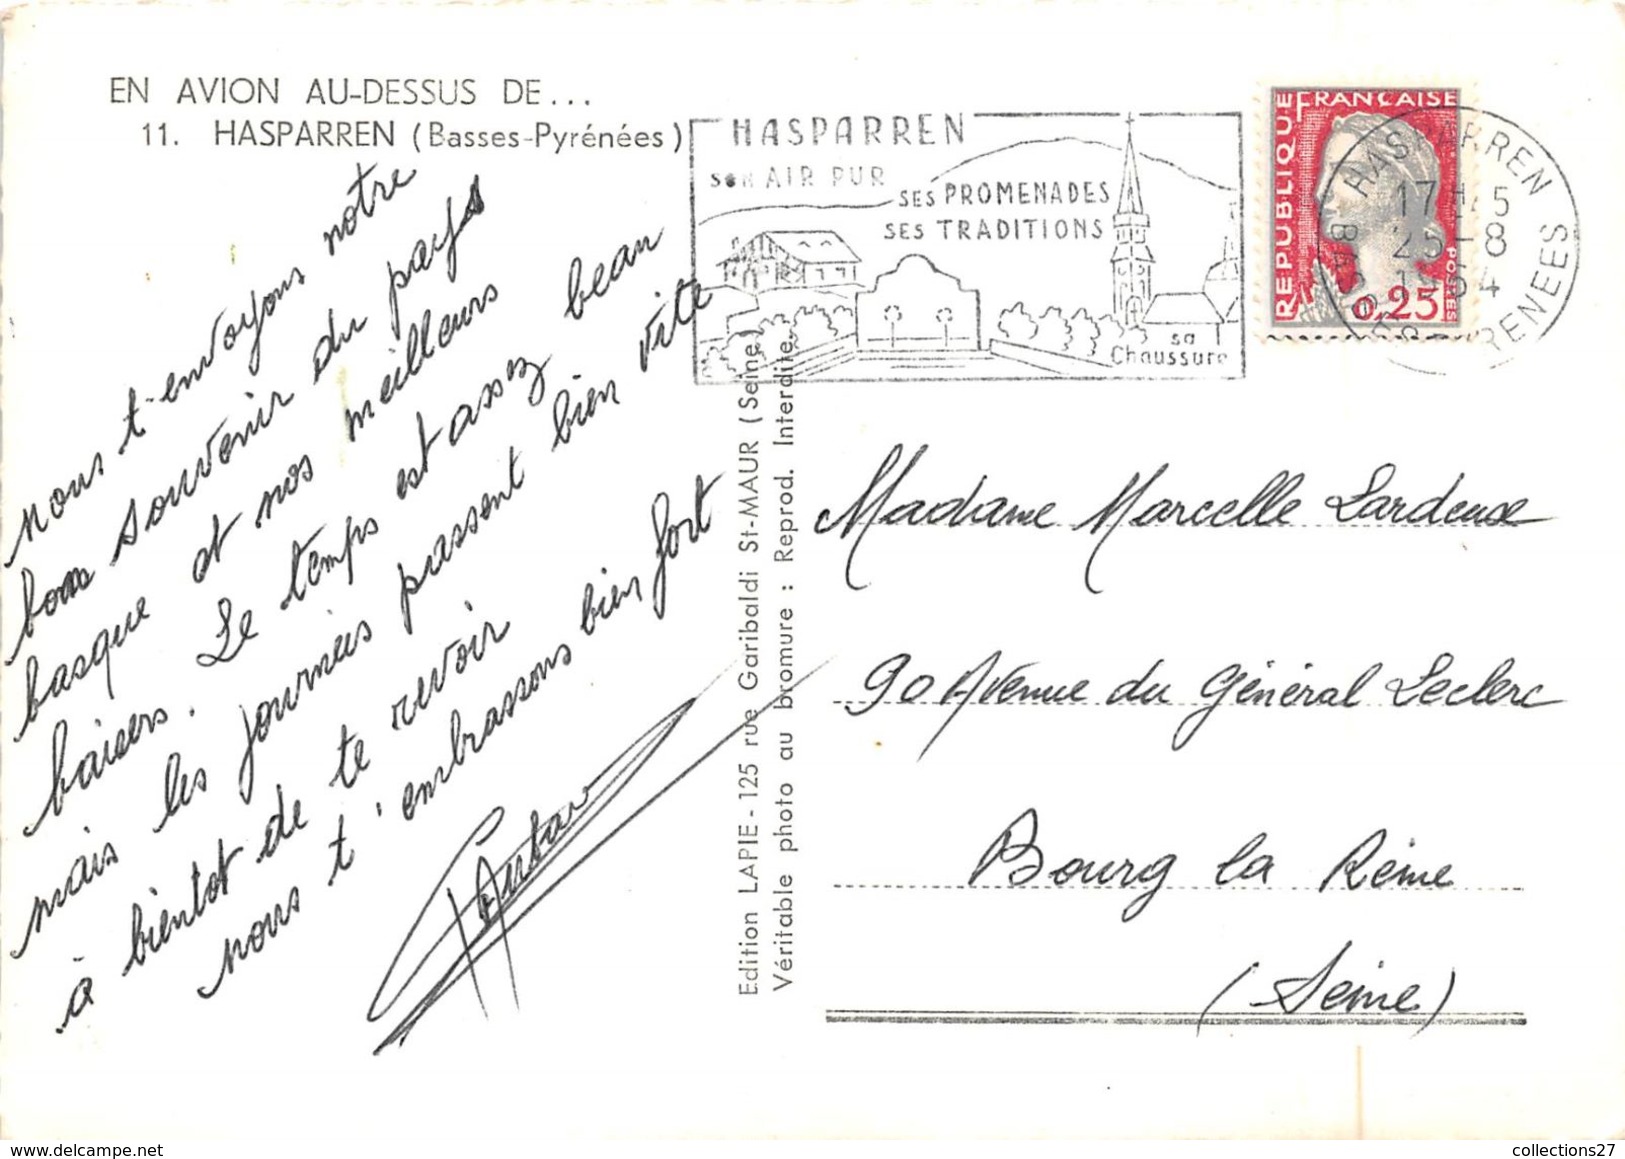 EN AVION AU-DESSUS DE...
11. HASPARREN (Basses-Pyrénées)
nous t'envoyons notre
bon souvenir du pays
basque et nos meilleurs
baisers. Le temps est assez beau
mais les journées passent bien vite
à bientot de te revoir
nous t'embrassons bien fort
HASPARREN
SON AIR PUR
SES PROMENADES
SES TRADITIONS
sa
Chaussure
REPUBLIQUE FRANÇAISE
POSTES
0,25
HASPARREN
17H45
25-8
1964
BASSES PYRENEES
Edition LAPIE - 125 rue Garibaldi St-MAUR (Seine)
Véritable photo au bromure : Reprod. Interdite.
Madame Marcelle Lardeux
90 Avenue du Général Leclerc
Bourg la Reine
(Seine)
collections27